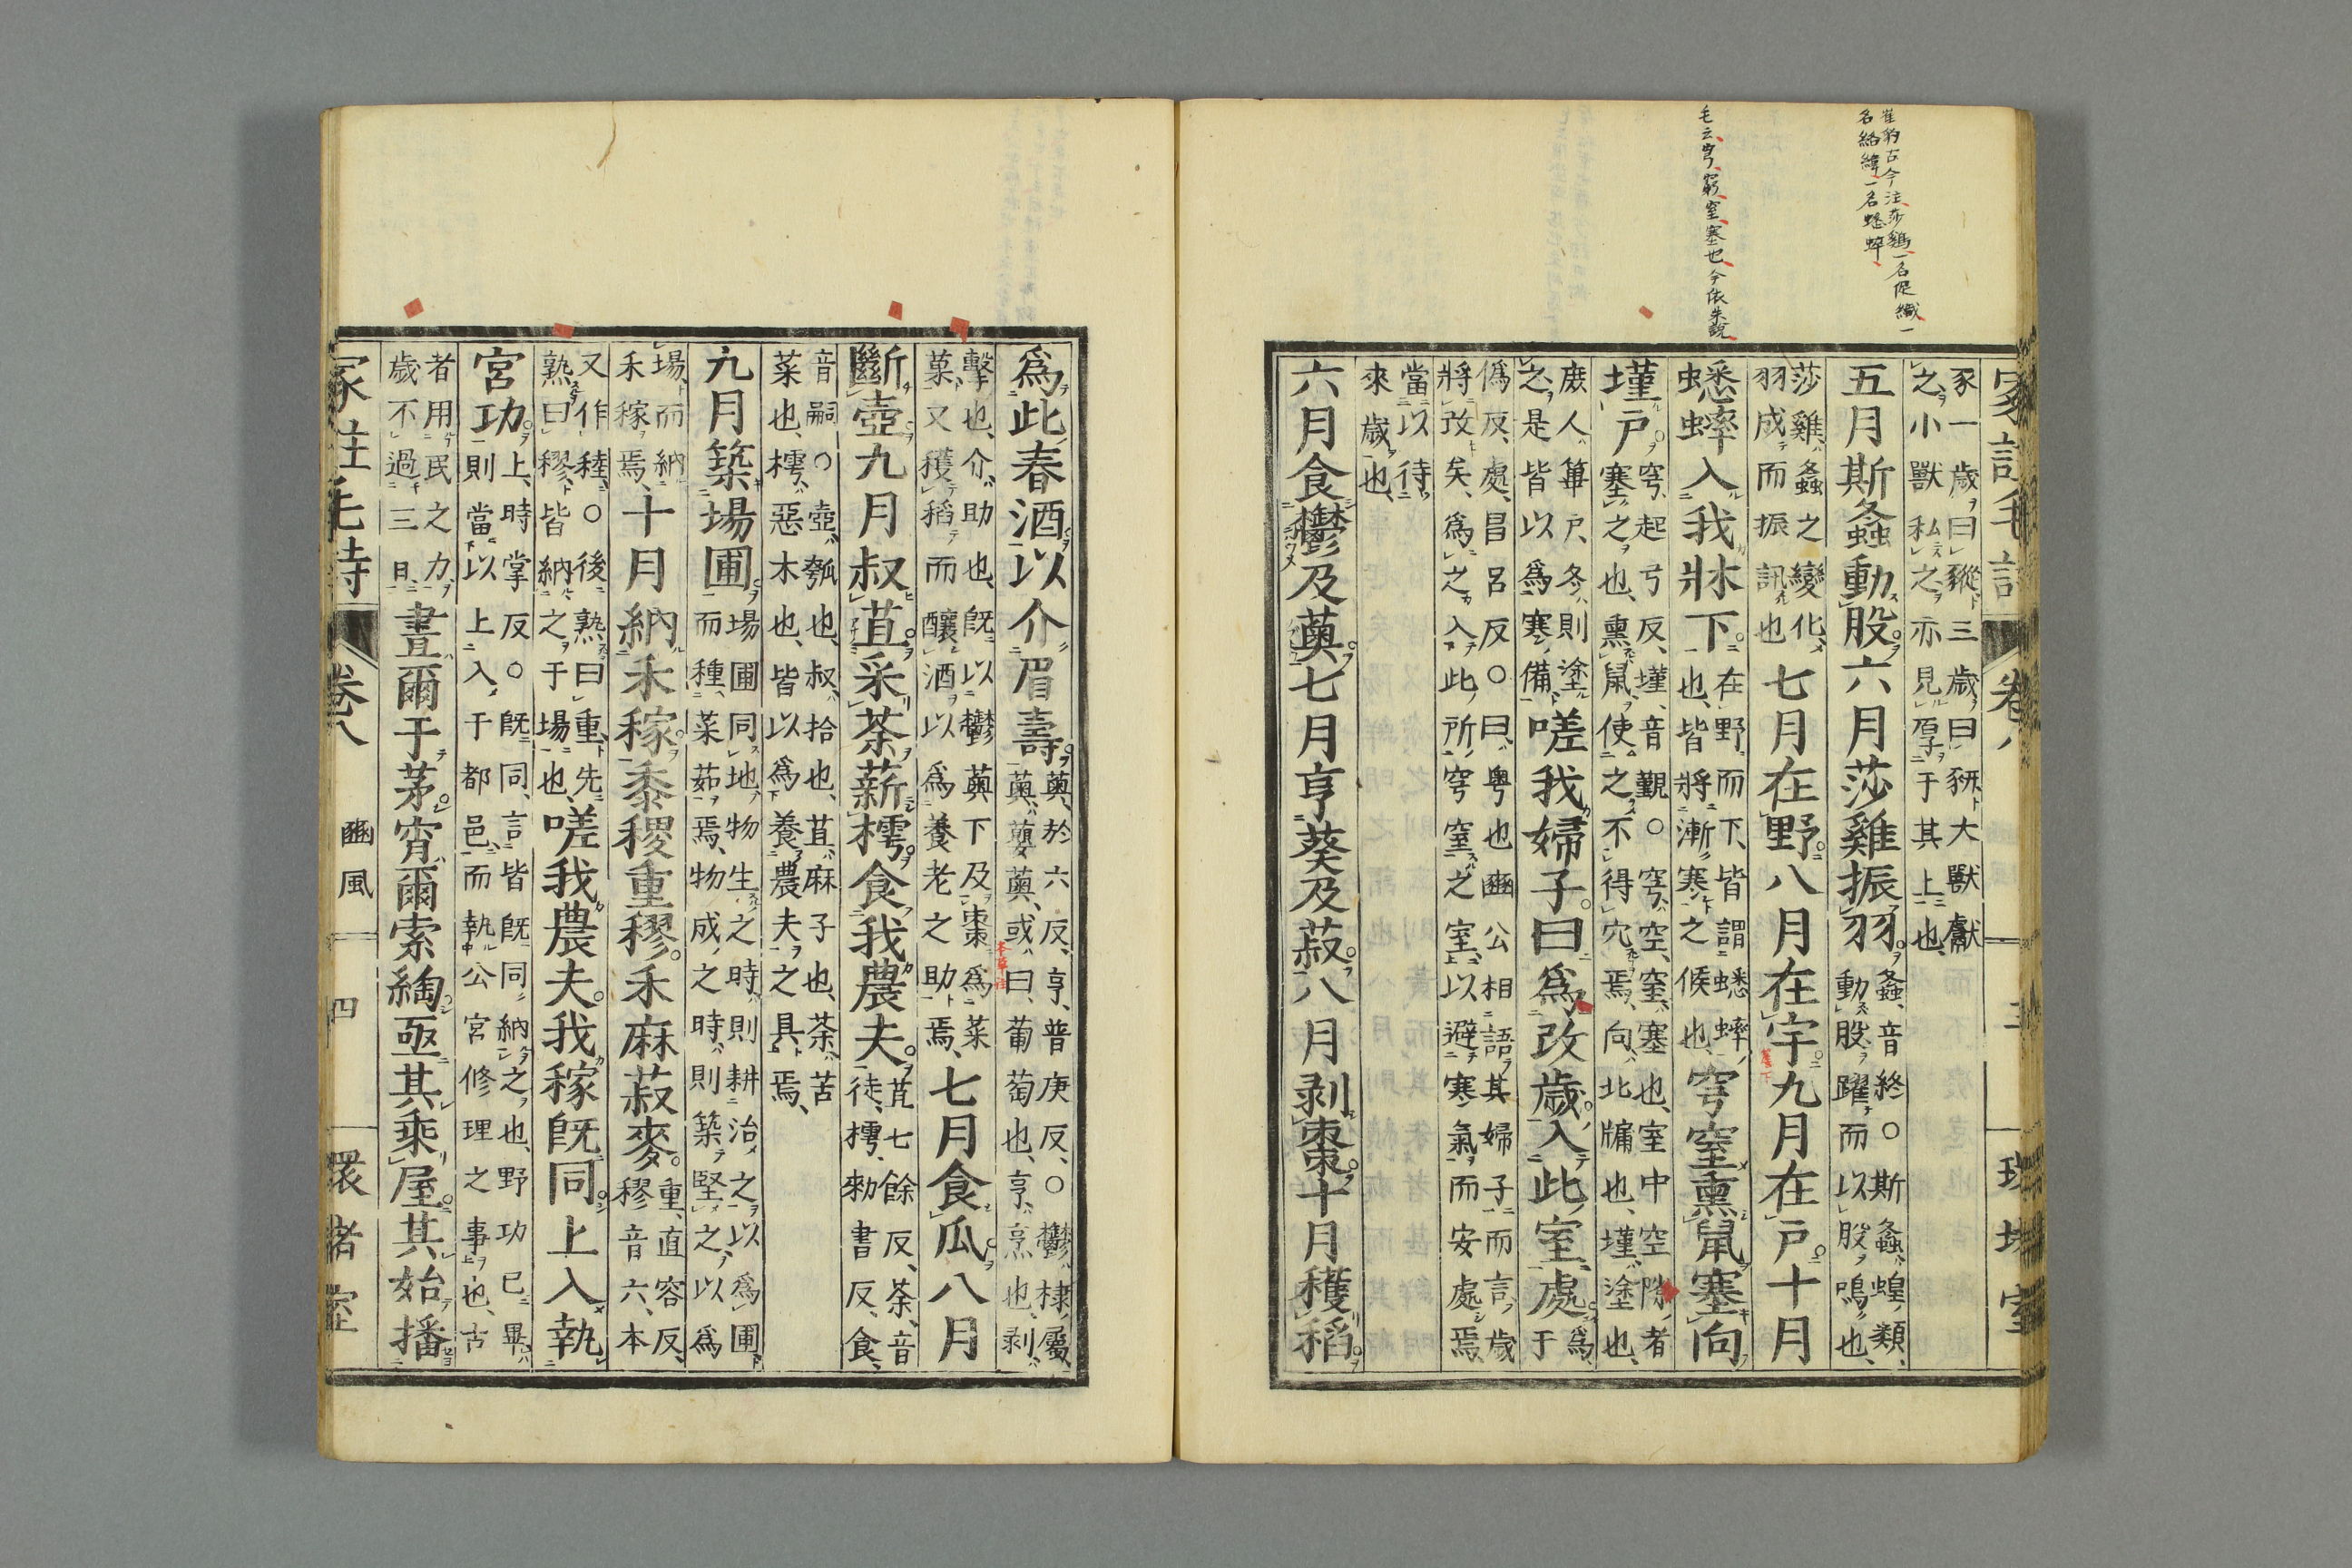 崔豹古今注莎鷄一名促織一
名絡緯一名蟋蟀
毛云穹窮窒塞也今依朱說
冢註毛詩 卷八
豕一歲曰豵三歲曰豜大獸獻
之小獸私之亦見厚于其上也
五月斯螽動股六月莎雞振羽螽音終○斯螽蝗類
動股躍而以股鳴也
莎雞螽之變化
羽成而振訊也七月在野八月在宇九月在戶十月
蟋蟀入我牀下在野而下皆謂蟋蟀
也皆將漸寒之候也穹窒熏鼠塞向
墐戶穹起弓反墐音覲○穹空窒塞也室中空隙者
塞之也熏鼠使之不得穴焉向北牖也墐塗也
庶人篳戶冬則塗
之是皆以爲寒備嗟我婦子曰爲改歲入此室處爲
于
僞反處昌呂反○曰粵也豳公相語其婦子而言歲
將改矣爲之入此所穹窒之室以避寒氣而安處焉
當以待
來歲也
六月食鬱及薁七月亨葵及菽八月剥棗十月穫稻
爲此春酒以介眉壽薁於六反亨普庚反○鬱棣屬
薁蘡薁或曰葡萄也亨烹也剥
擊也介助也旣以鬱薁下及棗爲菜
菓又穫稻而釀酒以爲養老之助焉七月食瓜八月
斷壺九月叔苴采荼薪樗食我農夫苴七餘反荼音
徒樗勑書反食
音嗣○壺瓠也叔拾也苴麻子也荼苦
菜也樗惡木也皆以爲養農夫之具焉
九月築場圃場圃同地物生之時則耕治之以爲圃
而種菜茹焉物成之時則築堅之以爲
場而納
禾稼焉十月納禾稼黍稷重穋禾麻菽麥重直容反
穋音六本
又作稑○後熟曰重先
熟曰穋皆納之于場也嗟我農夫我稼旣同上入執
宮功上時掌反○旣同言皆旣同納之也野功已畢
則當以上入于都邑而執公宮修理之事也古
者用民之力
歲不過三日晝爾于茅宵爾索綯亟其乘屋其始播
冢註毛詩 卷八 豳風 四 環堵室